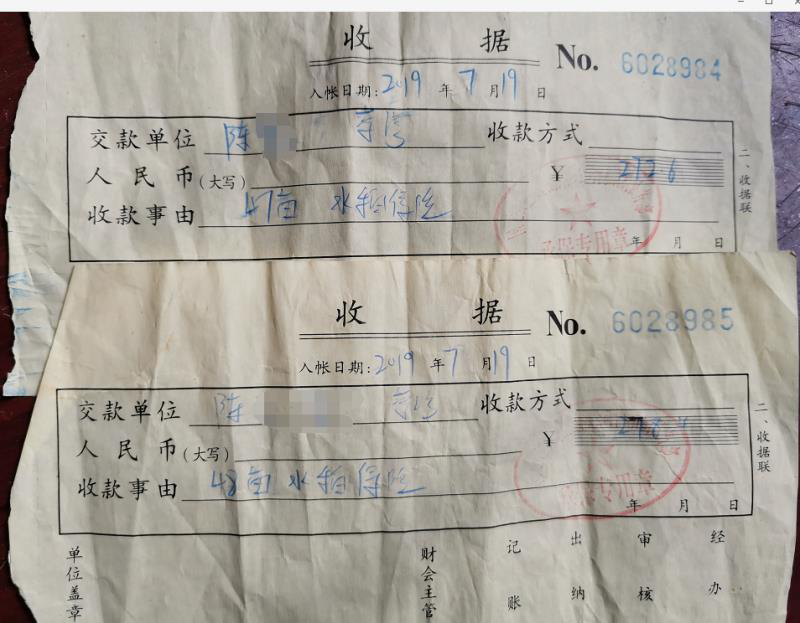 收 据 No. 6028984
入帐日期: 2019 年 7 月 19 日
交款单位 陈 收款方式
人民币(大写) ¥ 2726
收款事由 47亩 水稻保险
承保专用章
年 月 日
二、收据联
收 据 No. 6028985
入帐日期: 2019 年 7 月 19 日
交款单位 陈 收款方式
人民币(大写) ¥
收款事由 48亩 水稻保险
专用章
年 月 日
二、收据联
单位盖章 财会主管 记账 出纳 审核 经办